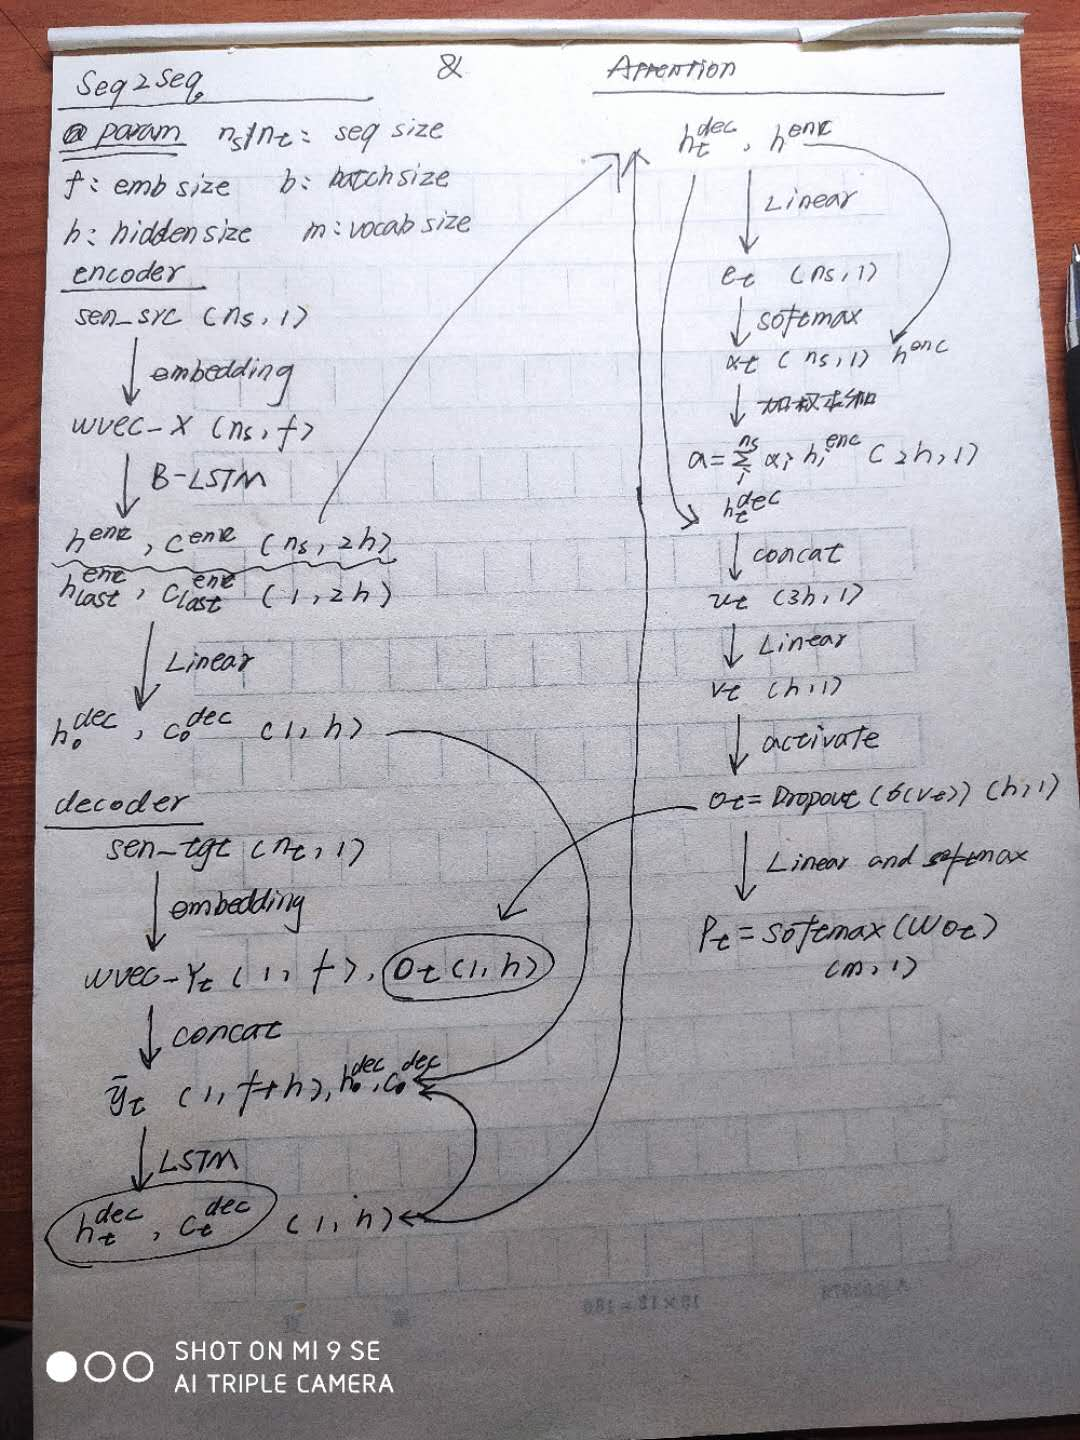 Seq2Seq & Attention
@ param ns/nt: seq size
f: emb size b: batch size
h: hidden size m: vocab size
encoder
sen_src (ns, 1)
embedding
wvec-X (ns, f)
B-LSTM
h^enc, c^enc (ns, 2h)
h_last^enc, c_last^enc (1, 2h)
Linear
h_0^dec, c_0^dec (1, h)
decoder
sen_tgt (nt, 1)
embedding
wvec-Y_t (1, f), O_t (1, h)
concat
ȳ_t (1, f+h), h_0^dec, c_0^dec
LSTM
h_t^dec, c_t^dec (1, h)
h_t^dec, h^enc
Linear
e_t (ns, 1)
softmax
α_t (ns, 1) h^enc
加权求和
a = Σ_i^ns α_i h_i^enc (2h, 1)
h_t^dec
concat
u_t (3h, 1)
Linear
v_t (h, 1)
activate
o_t = Dropout (σ(v_t)) (h, 1)
Linear and softmax
P_t = softmax (W o_t)
(m, 1)
SHOT ON MI 9 SE
AI TRIPLE CAMERA